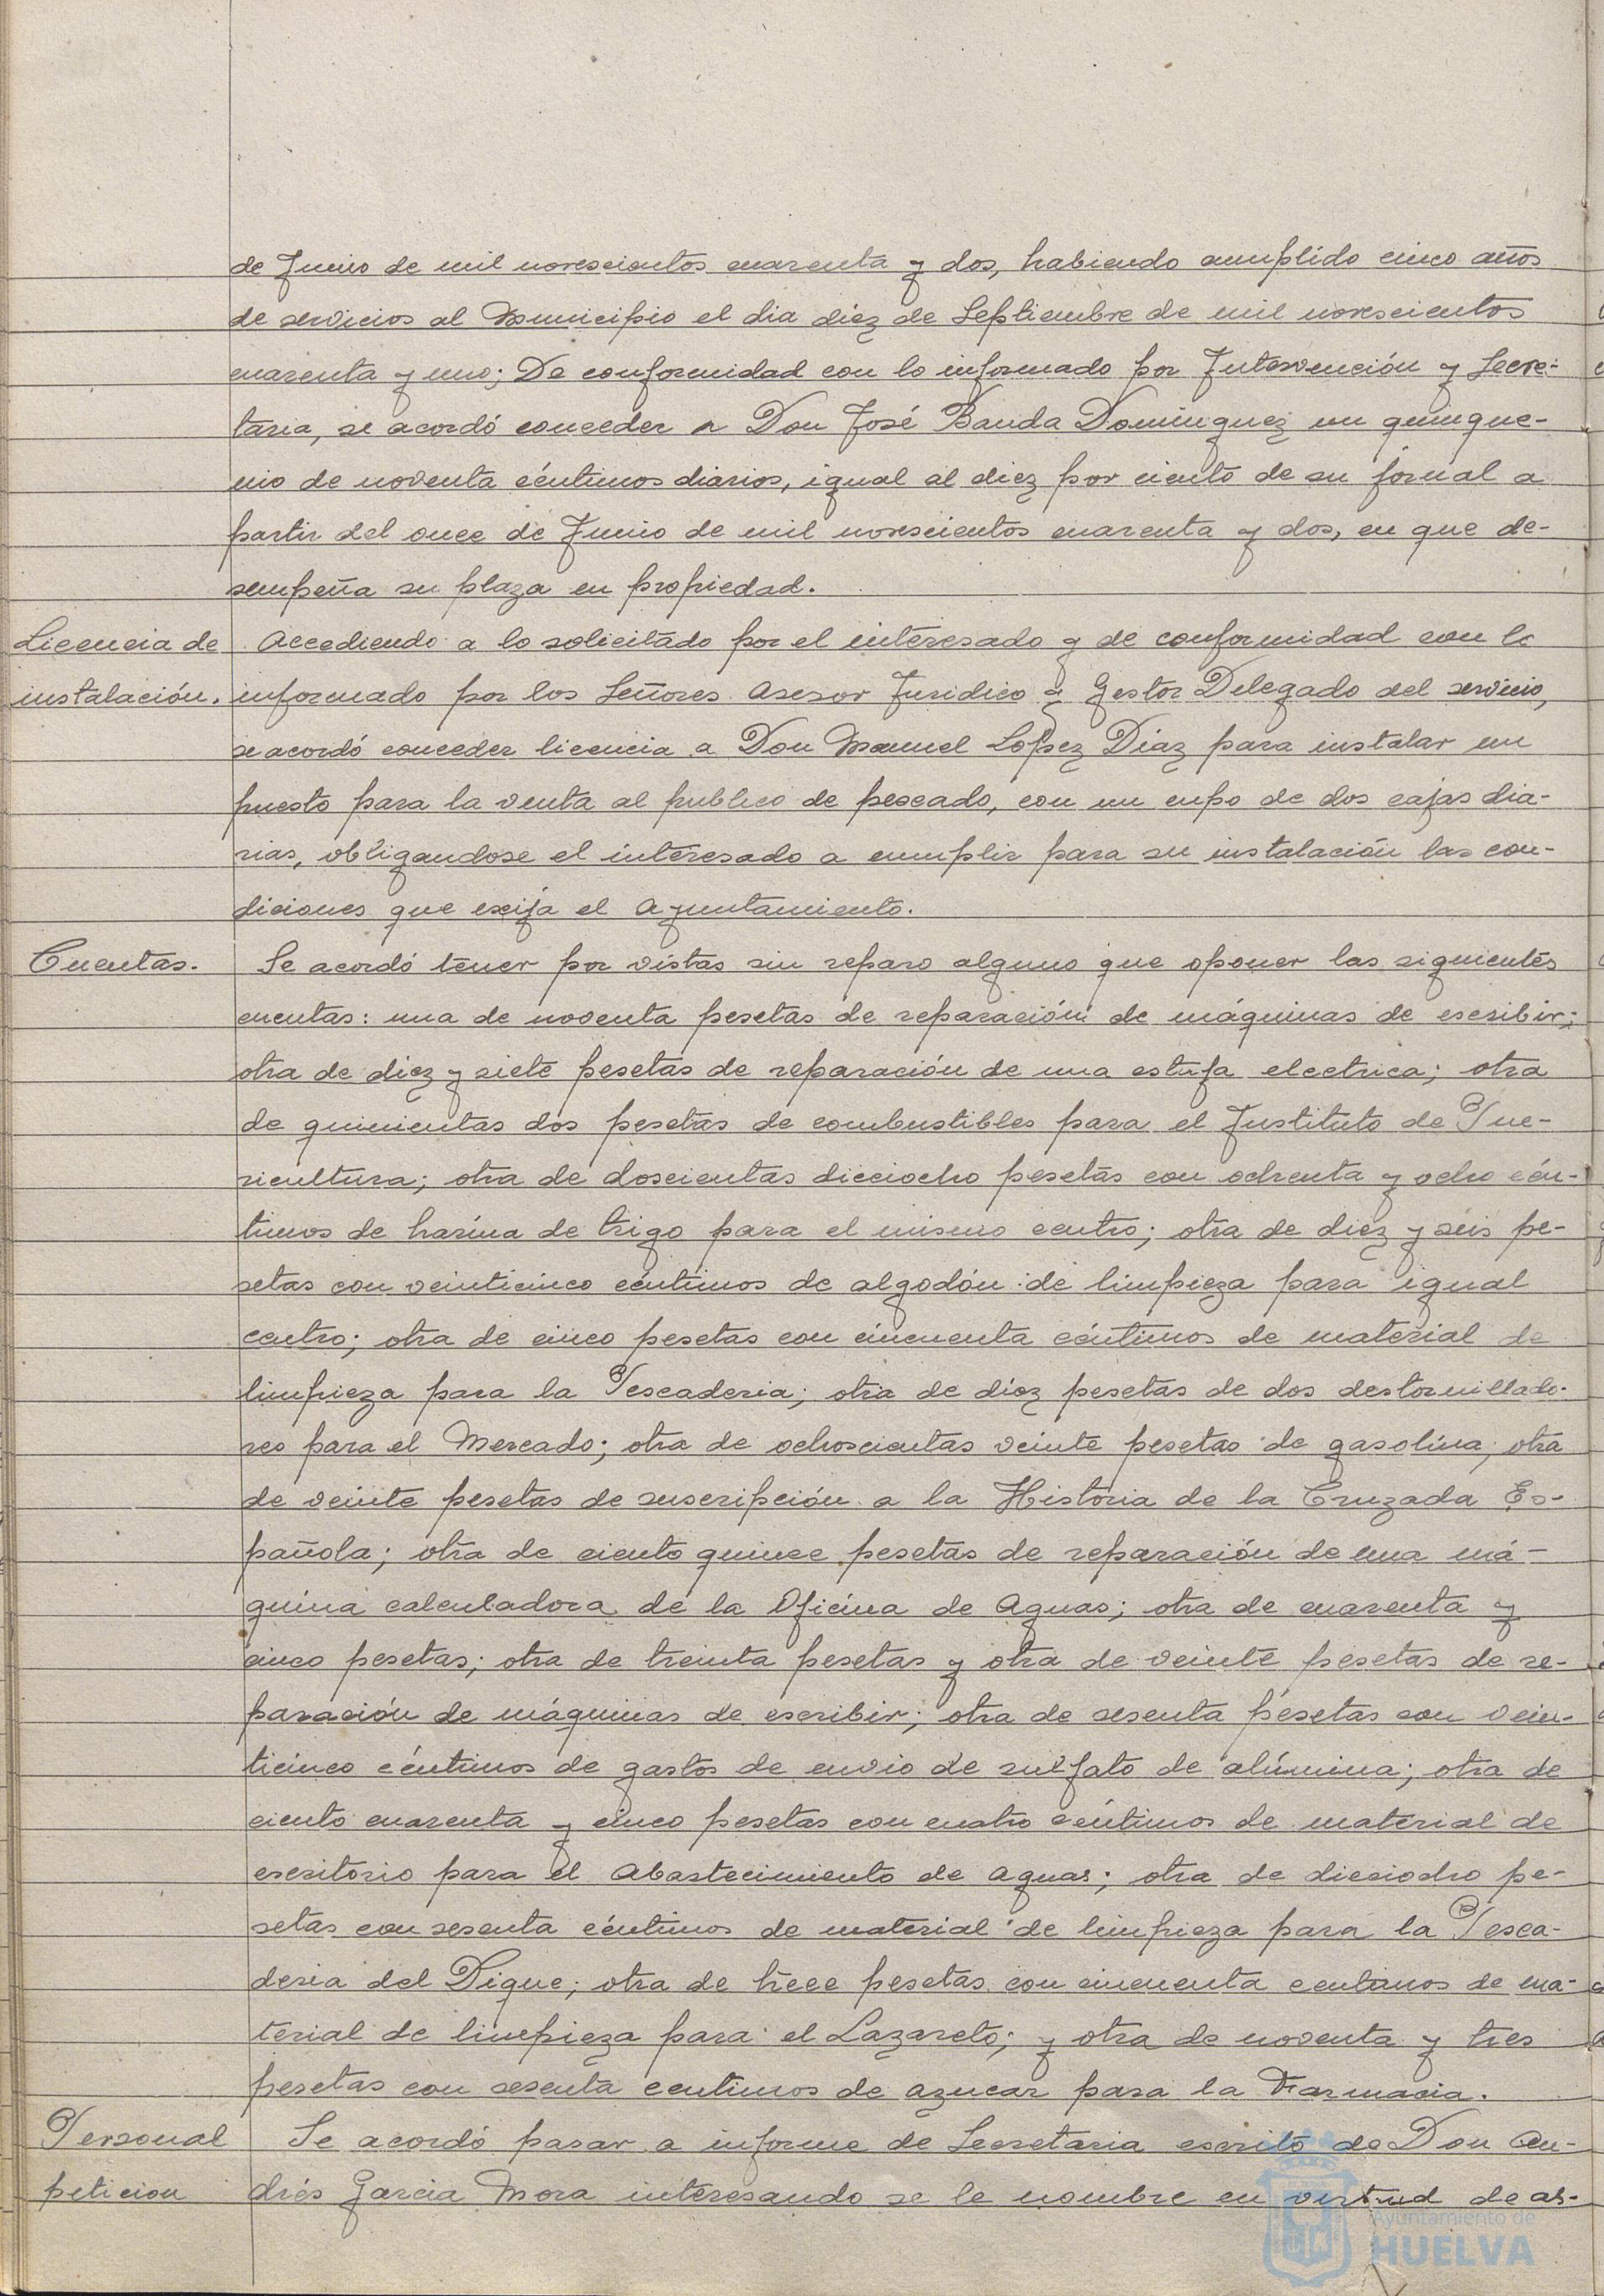 de Junio de mil novescientos cuarenta y dos, habiendo cumplido cinco años
de servicios al Municipio el dia diez de Septiembre de mil novescientos
cuarenta y uno; De conformidad con lo informado por Intervención y Secre-
taria, se acordó conceder a Don José Banda Domínguez un quinque-
nio de noventa céntimos diarios, igual al diez por ciento de su jornal a
partir del once de Junio de mil novescientos cuarenta y dos, en que de-
sempeña su plaza en propiedad.
Licencia de instalación.
Accediendo a lo solicitado por el interesado y de conformidad con lo
informado por los Señores Asesor Juridico y Gestor Delegado del servicio,
se acordó conceder licencia a Don Manuel López Díaz para instalar un
puesto para la venta al publico de pescado, con un cupo de dos cajas dia-
rias, obligandose el interesado a cumplir para su instalación las con-
diciones que exija el Ayuntamiento.
Cuentas.
Se acordó tener por vistas sin reparo alguno que oponer las siguientes
cuentas: una de noventa pesetas de reparación de máquinas de escribir;
otra de diez y siete pesetas de reparación de una estufa electrica; otra
de quinientas dos pesetas de combustibles para el Instituto de Pue-
ricultura; otra de doscientas dieciocho pesetas con ochenta y ocho cén-
timos de harina de trigo para el mismo centro; otra de diez y seis pe-
setas con veinticinco céntimos de algodón de limpieza para igual
centro; otra de cinco pesetas con cincuenta céntimos de material de
limpieza para la Pescaderia; otra de diez pesetas de dos destornillado-
res para el Mercado; otra de ochoscientas veinte pesetas de gasolina; otra
de veinte pesetas de suscripción a la Historia de la Cruzada Es-
pañola; otra de ciento quince pesetas de reparación de una má-
quina calculadora de la Oficina de Aguas; otra de cuarenta y
cinco pesetas; otra de treinta pesetas y otra de veinte pesetas de re-
paración de máquinas de escribir; otra de sesenta pesetas con vein-
ticinco céntimos de gastos de envio de sulfato de alúmina; otra de
ciento cuarenta y cinco pesetas con cuatro céntimos de material de
escritorio para el Abastecimiento de Aguas; otra de dieciocho pe-
setas con sesenta céntimos de material de limpieza para la Pesca-
deria del Dique; otra de trece pesetas con cincuenta centimos de ma-
terial de limpieza para el Lazareto; y otra de noventa y tres
pesetas con sesenta centimos de azucar para la Farmacia.
Personal peticion
Se acordó pasar a informe de Secretaria escrito de Don An-
drés Garcia Mora interesando se le nombre en virtud de as-
Ayuntamiento de
HUELVA